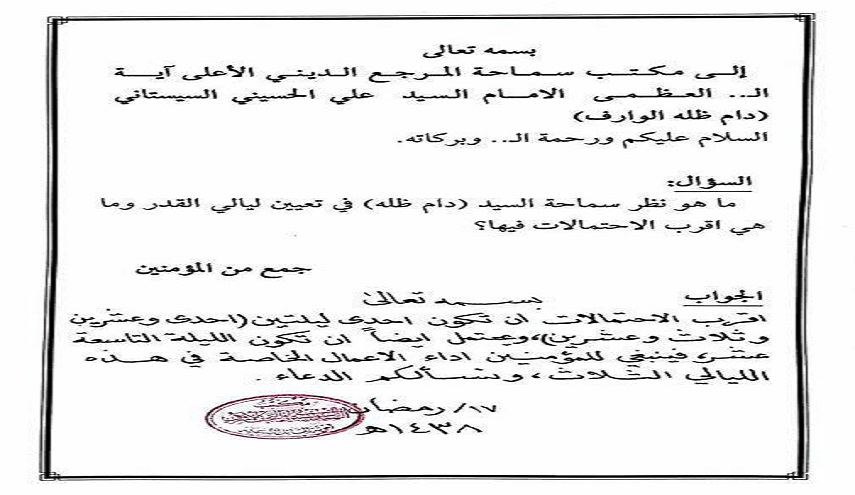 بسمه تعالى
إلى مكتب سماحة المرجع الديني الأعلى آية
الـ... العظمى الامام السيد علي الحسيني السيستاني
(دام ظله الوارف)
السلام عليكم ورحمة الـ... وبركاته.
السؤال:
ما هو نظر سماحة السيد (دام ظله) في تعيين ليالي القدر وما
هي اقرب الاحتمالات فيها؟
جمع من المؤمنين
الجواب
بسمه تعالى
اقرب الاحتمالات ان تكون احدى ليلتين (احدى وعشرين
وثلاث وعشرين)، ويحتمل ايضاً ان تكون الليلة التاسعة
عشر، فينبغي للمؤمنين اداء الاعمال الخاصة في هذه
الليالي الثلاث، ونسألكم الدعاء.
١٧/ رمضان
١٤٣٨هـ
مكتب